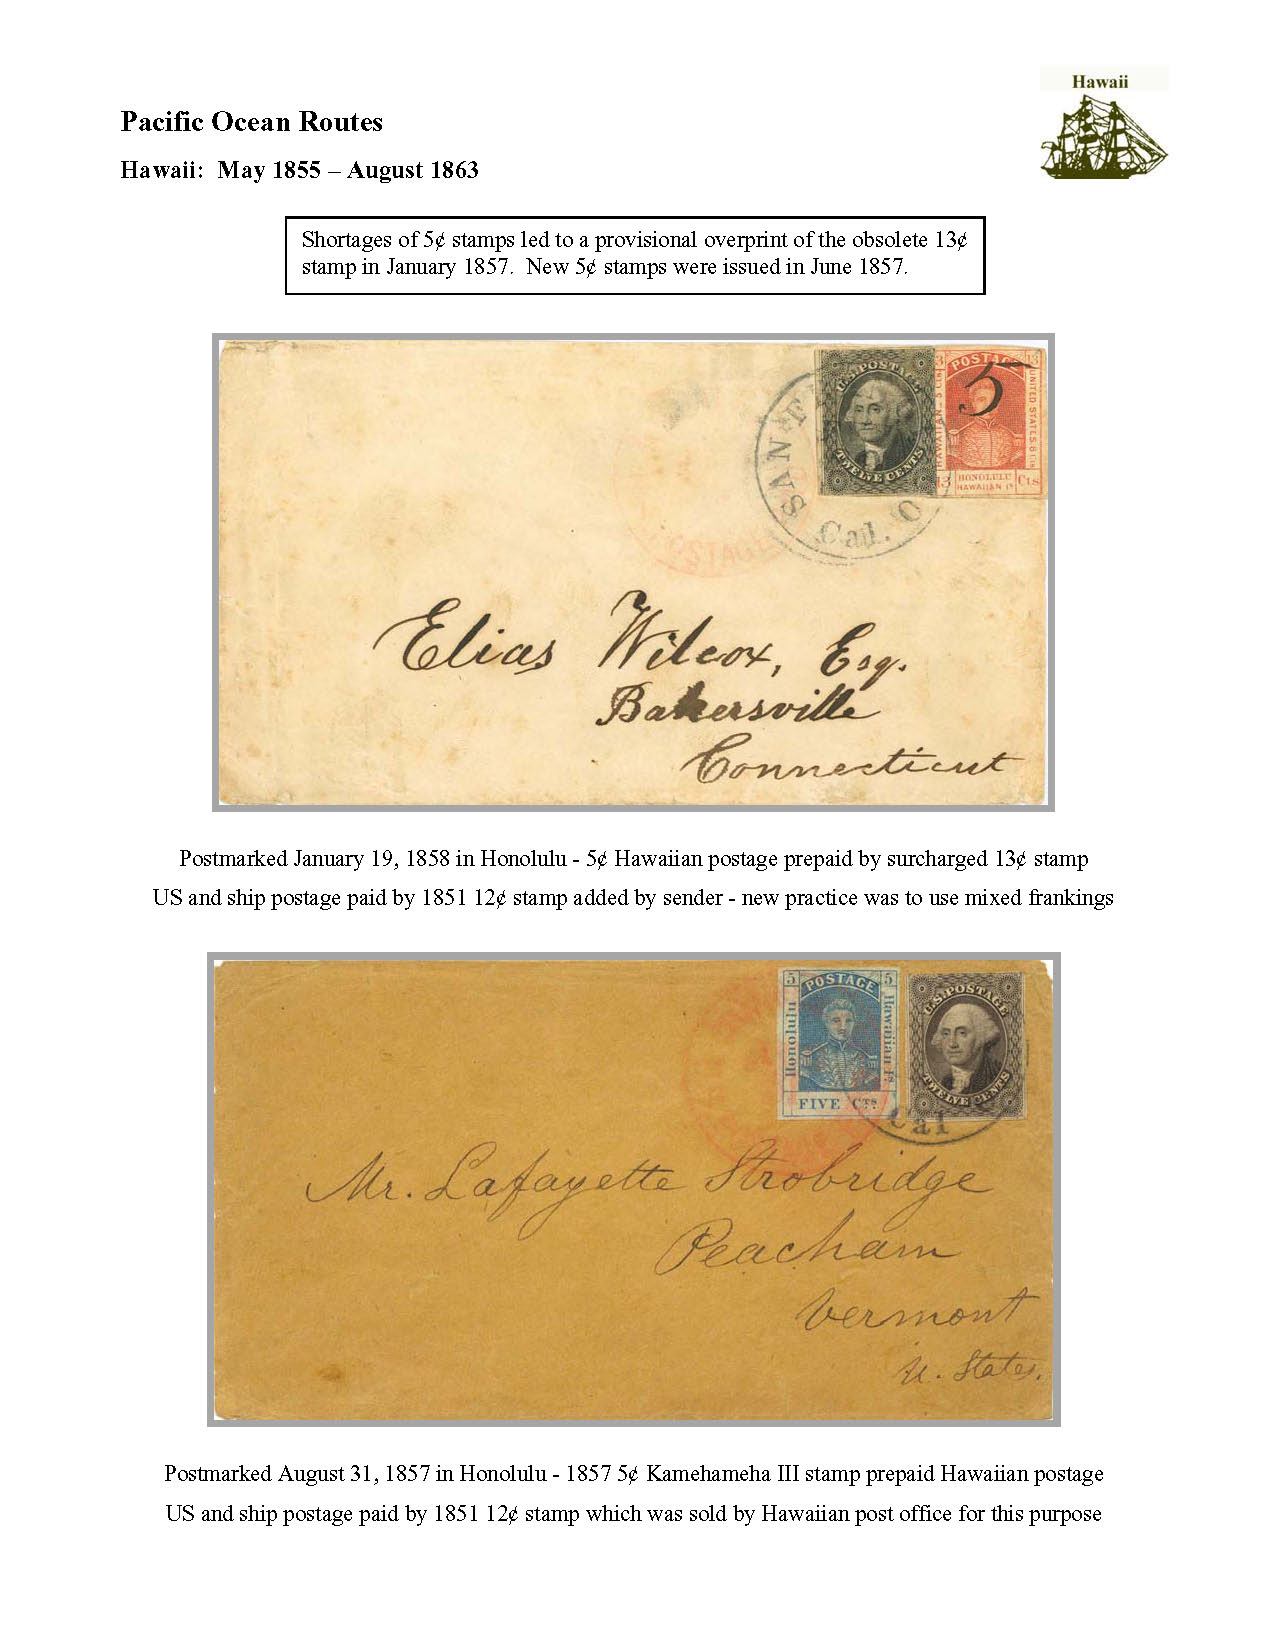 Hawaii
Pacific Ocean Routes
Hawaii: May 1855 – August 1863
Shortages of 5¢ stamps led to a provisional overprint of the obsolete 13¢
stamp in January 1857. New 5¢ stamps were issued in June 1857.
U.S. POSTAGE
TWELVE CENTS
POSTAGE
5
13
HAWAIIAN. 5 Cts
UNITED STATES. 8 Cts
13 HONOLULU Cts
HAWAIIAN Is
SAN
Cal.
POSTAGE
Elias Wilcox, Esq.
Bakersville
Connecticut
Postmarked January 19, 1858 in Honolulu - 5¢ Hawaiian postage prepaid by surcharged 13¢ stamp
US and ship postage paid by 1851 12¢ stamp added by sender - new practice was to use mixed frankings
5 POSTAGE 5
Honolulu
Hawaiian Is.
FIVE Cts.
U.S. POSTAGE
TWELVE CENTS
Cal
Mr. Lafayette Strobridge
Peacham
Vermont
U. States.
Postmarked August 31, 1857 in Honolulu - 1857 5¢ Kamehameha III stamp prepaid Hawaiian postage
US and ship postage paid by 1851 12¢ stamp which was sold by Hawaiian post office for this purpose